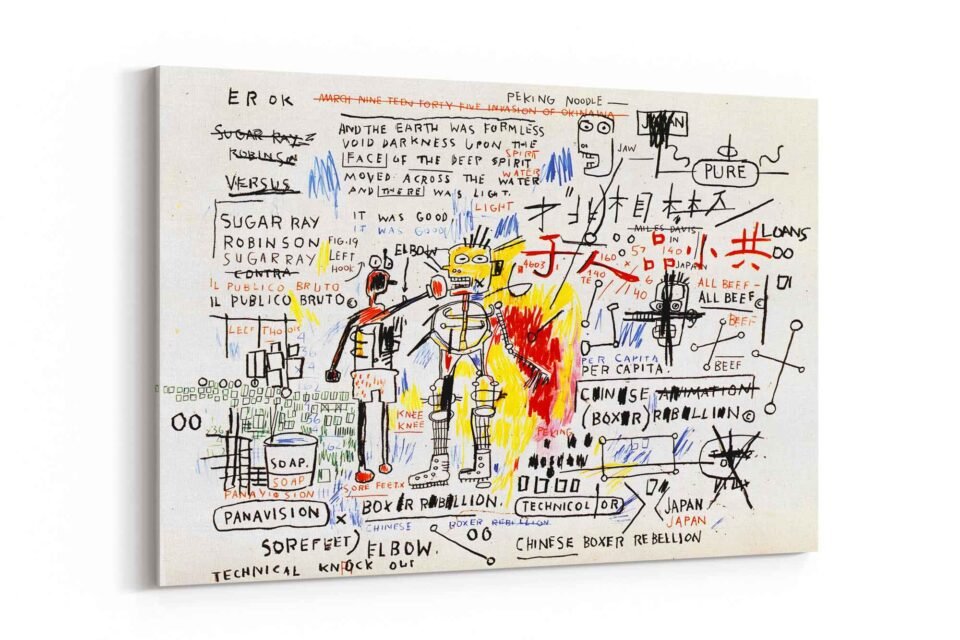 EROK
MARCH NINETEEN FORTY FIVE INVASION OF OKINAWA
PEKING NOODLE
SUGAR RAY
ROBINSON
VERSUS
AND THE EARTH WAS FORMLESS
VOID DARKNESS UPON THE
FACE OF THE DEEP SPIRIT
SPIRIT
MOVED ACROSS THE WATER
WATER
AND THERE WAS LIGHT.
LIGHT
JAW
JAPAN
PURE
SUGAR RAY
ROBINSON
SUGAR RAY
CONTRA
IL PUBLICO BRUTO
IL PUBLICO BRUTO©
IT WAS GOOD
IT WAS GOOD
FIG.19
LEFT
HOOK
ELBOW
MILES DAVIS
IN
JAPAN
LOANS
4603
160
57
140
140
140
于人品小共
ALL BEEF
ALL BEEF
BEEF
BEEF
PER CAPITA
PER CAPITA.
CHINESE ANIMATION
(BOXER) REBELLION©
KNEE
KNEE
PEKING
MOSCOW
SOAP.
SOAP
PANAVISION
PANAVISION
SORE FEET
BOXER REBELLION.
CHINESE BOXER REBELLION
TECHNICOLOR
JAPAN
JAPAN
SOREFEET) ELBOW.
CHINESE BOXER REBELLION
TECHNICAL KNOCK OUT